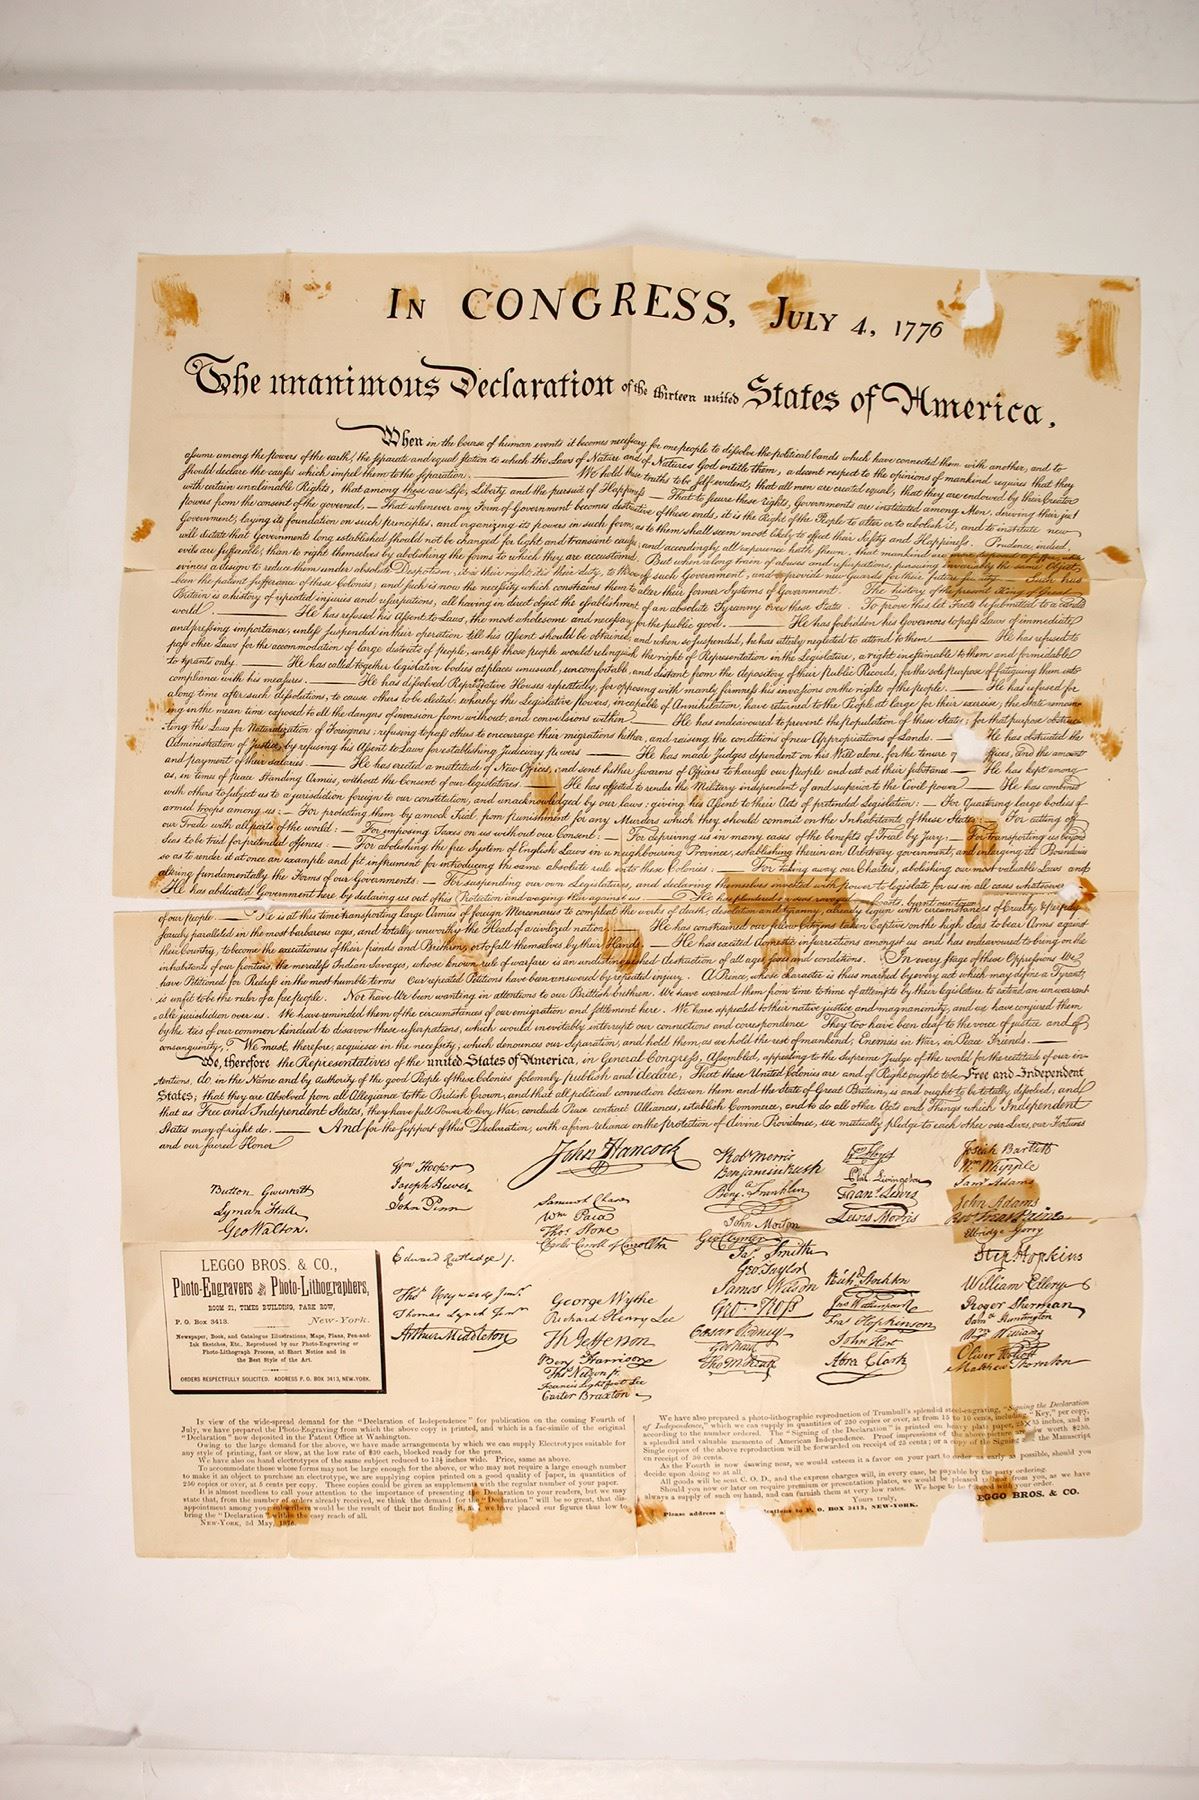 IN CONGRESS, JULY 4, 1776
The unanimous Declaration of the thirteen united States of America.
When in the Course of human events it becomes necessary for one people to dissolve the political bands which have connected them with another, and to
assume among the powers of the earth, the separate and equal station to which the Laws of Nature and of Nature's God entitle them, a decent respect to the opinions of mankind requires that they
should declare the causes which impel them to the separation. We hold these truths to be self-evident, that all men are created equal, that they are endowed by their Creator
with certain unalienable Rights, that among these are Life, Liberty and the pursuit of Happiness — That to secure these rights, Governments are instituted among Men, deriving their just
powers from the consent of the governed, — That whenever any Form of Government becomes destructive of these ends, it is the Right of the People to alter or to abolish it, and to institute new
Government, laying its foundation on such principles, and organizing its powers in such form, as to them shall seem most likely to effect their Safety and Happiness. Prudence, indeed,
will dictate that Governments long established should not be changed for light and transient causes; and accordingly all experience hath shewn, that mankind are more disposed to suffer, while
evils are sufferable, than to right themselves by abolishing the forms to which they are accustomed. But when a long train of abuses and usurpations, pursuing invariably the same Object,
evinces a design to reduce them under absolute Despotism, it is their right, it is their duty, to throw off such Government, and to provide new Guards for their future security — Such has
been the patient sufferance of these Colonies; and such is now the necessity which constrains them to alter their former Systems of Government. The history of the present King of Great
Britain is a history of repeated injuries and usurpations, all having in direct object the establishment of an absolute Tyranny over these States. To prove this let Facts be submitted to a candid
world. He has refused his Assent to Laws, the most wholesome and necessary for the public good. He has forbidden his Governors to pass Laws of immediate
and pressing importance, unless suspended in their operation till his Assent should be obtained; and when so suspended, he has utterly neglected to attend to them. He has refused to
pass other Laws for the accommodation of large districts of people, unless those people would relinquish the right of Representation in the Legislature, a right inestimable to them and formidable
to tyrants only. He has called together legislative bodies at places unusual, uncomfortable, and distant from the depository of their Public Records, for the sole purpose of fatiguing them into
compliance with his measures. He has dissolved Representative Houses repeatedly, for opposing with manly firmness his invasions on the rights of the people. He has refused for
a long time after such dissolutions, to cause others to be elected; whereby the Legislative powers, incapable of Annihilation, have returned to the People at large for their exercise; the State remain-
ing in the mean time exposed to all the dangers of invasion from without, and convulsions within. He has endeavoured to prevent the Population of these States; for that purpose obstruc-
ting the Laws for Naturalization of Foreigners; refusing to pass others to encourage their migrations hither, and raising the conditions of new Appropriations of Lands. He has obstructed the
Administration of Justice, by refusing his Assent to Laws for establishing Judiciary powers He has made Judges dependent on his Will alone, for the tenure of offices, and the amount
and payment of their salaries. He has erected a multitude of New Offices, and sent hither swarms of Officers to harass our People and eat out their substance. He has kept among
us, in times of peace Standing Armies, without the Consent of our legislatures. He has affected to render the Military independent of and superior to the Civil power. He has combined
with others to subject us to a jurisdiction foreign to our constitution, and unacknowledged by our laws; giving his Assent to their Acts of pretended Legislation: — For Quartering large bodies of
armed troops among us: — For protecting them by a mock Trial, from punishment for any Murders which they should commit on the Inhabitants of these States: — For cutting off
our Trade with all parts of the world: — For imposing Taxes on us without our Consent: — For depriving us in many cases of the benefits of Trial by Jury: — For transporting us beyond
Seas to be tried for pretended offences: — For abolishing the free System of English Laws in a neighbouring Province, establishing therein an Arbitrary government, and enlarging its Boundaries
so as to render it at once an example and fit instrument for introducing the same absolute rule into these Colonies: For taking away our Charters, abolishing our most valuable Laws and
altering fundamentally the Forms of our Governments: — For suspending our own Legislatures, and declaring themselves invested with power to legislate for us in all cases whatsoever
He has abdicated Government here, by declaring us out of his Protection and waging War against us. He has plundered our seas, ravaged Coasts, burnt our towns
of our people. He is at this time transporting large Armies of foreign Mercenaries to compleat the works of death, desolation and tyranny, already begun with circumstances of Cruelty & perfidy
scarcely paralleled in the most barbarous ages, and totally unworthy the Head of a civilized nation. He has constrained our fellow Citizens taken Captive on the high Seas to bear Arms against
their Country, to become the executioners of their friends and Brethren, or to fall themselves by their Hands. He has excited domestic insurrections amongst us, and has endeavoured to bring on the
inhabitants of our frontiers, the merciless Indian Savages, whose known rule of warfare is an undistinguished destruction of all ages, sexes and conditions. In every stage of these Oppressions We
have Petitioned for Redress in the most humble terms Our repeated Petitions have been answered by repeated injury. A Prince, whose character is thus marked by every act which may define a Tyrant,
is unfit to be the ruler of a free people. Nor have We been wanting in attentions to our Brittish brethren. We have warned them from time to time of attempts by their legislature to extend an unwarrant-
able jurisdiction over us. We have reminded them of the circumstances of our emigration and settlement here. We have appealed to their native justice and magnanimity, and we have conjured them
by the ties of our common kindred to disavow these usurpations, which would inevitably interrupt our connections and correspondence They too have been deaf to the voice of justice and of
consanguinity. We must, therefore, acquiesce in the necessity, which denounces our Separation, and hold them, as we hold the rest of mankind, Enemies in War, in Peace Friends. —
We, therefore the Representatives of the united States of America, in General Congress, Assembled, appealing to the Supreme Judge of the world for the rectitude of our in-
tentions, do, in the Name and by Authority of the good People of these Colonies solemnly publish and declare, That these United Colonies are and of Right ought to be Free and Independent
States; that they are Absolved from all Allegiance to the British Crown, and that all political connection between them and the State of Great Britain, is and ought to be totally dissolved; and
that as Free and Independent States, they have full Power to levy War, conclude Peace contract Alliances, establish Commerce, and to do all other Acts and Things which Independent
States may of right do. And for the support of this Declaration, with a firm reliance on the Protection of divine Providence, we mutually pledge to each other our Lives, our Fortunes
and our sacred Honor
John Hancock
Button Gwinnett
Lyman Hall
Geo Walton.
Wm Hooper
Joseph Hewes,
John Penn
Edward Rutledge
Thos Heyward Junr
Thomas Lynch Junr
Arthur Middleton
Samuel Chase
Wm Paca
Thos Stone
Charles Carroll of Carrollton
George Wythe
Richard Henry Lee
Th Jefferson
Benj Harrison
Thos Nelson jr
Francis Lightfoot Lee
Carter Braxton
Robt Morris
Benjamin Rush
Benja Franklin
John Morton
Geo Clymer
Jas Smith
Geo Taylor
James Wilson
Geo Ross
Caesar Rodney
Geo Read
Tho M:Kean
Phil. Livingston
Frans Lewis
Lewis Morris
Richd Stockton
Jno Witherspoon
Fras Hopkinson
John Hart
Abra Clark
Josiah Bartlett
Wm Whipple
Saml Adams
John Adams
Robt Treat Paine
Elbridge Gerry
Step Hopkins
William Ellery
Roger Sherman
Saml Huntington
Wm Williams
Oliver Wolcott
Matthew Thornton
LEGGO BROS. & CO.,
Photo-Engravers and Photo-Lithographers,
ROOM 21, TIMES BUILDING, PARK ROW,
P. O. Box 3413. New-York.
Newspaper, Book, and Catalogue Illustrations, Maps, Plans, Pen-and-
Ink Sketches, Etc., Reproduced by our Photo-Engraving or
Photo-Lithograph Process, at Short Notice and in
the Best Style of the Art.
ORDERS RESPECTFULLY SOLICITED. ADDRESS P. O. BOX 3413, NEW-YORK.
In view of the wide-spread demand for the "Declaration of Independence" for publication on the coming Fourth of
July, we have prepared the Photo-Engraving from which the above copy is printed, and which is a fac-simile of the original
"Declaration" now deposited in the Patent Office at Washington.
Owing to the large demand for the above, we have made arrangements by which we can supply Electrotypes suitable for
any style of printing, fast or slow, at the low rate of $20 each, blocked ready for the press.
We have also on hand electrotypes of the same subject reduced to 13½ inches wide. Price, same as above.
To accommodate those whose forms may not be large enough for the above, or who may not require a large enough number
to make it an object to purchase an electrotype, we are supplying copies printed on a good quality of paper, in quantities of
250 copies or over, at 5 cents per copy. These copies could be given as supplements with the regular number of your paper.
It is almost needless to call your attention to the importance of presenting the Declaration to your readers, but we may
state that, from the number of orders already received, we think the demand for the "Declaration" will be so great, that dis-
appointment among your subscribers would be the result of their not finding it, and we have placed our figures thus low to
bring the "Declaration" within the easy reach of all.
NEW-YORK, 3d May, 1876.
We have also prepared a photo-lithographic reproduction of Trumbull's splendid steel-engraving, "Signing the Declaration
of Independence," which we can supply in quantities of 250 copies or over, at from 15 to 10 cents, including "Key," per copy,
according to the number ordered. The "Signing of the Declaration" is printed on heavy plate paper, 25×35 inches, and is
a splendid and valuable memento of American Independence. Proof impressions of the above picture are now worth $250.
Single copies of the above reproduction will be forwarded on receipt of 25 cents; or a copy of the Signing the Manuscript
on receipt of 50 cents.
As the Fourth is now drawing near, we would esteem it a favor on your part to order as early as possible, should you
decide upon doing so at all.
All goods will be sent C. O. D., and the express charges will, in every case, be payable by the party ordering.
Should you now or later on require premium or presentation plates, we would be pleased to hear from you, as we have
always a supply of such on hand, and can furnish them at very low rates. We hope to be favored with your order.
Yours truly, LEGGO BROS. & CO.
Please address P. O. BOX 3413, NEW-YORK.